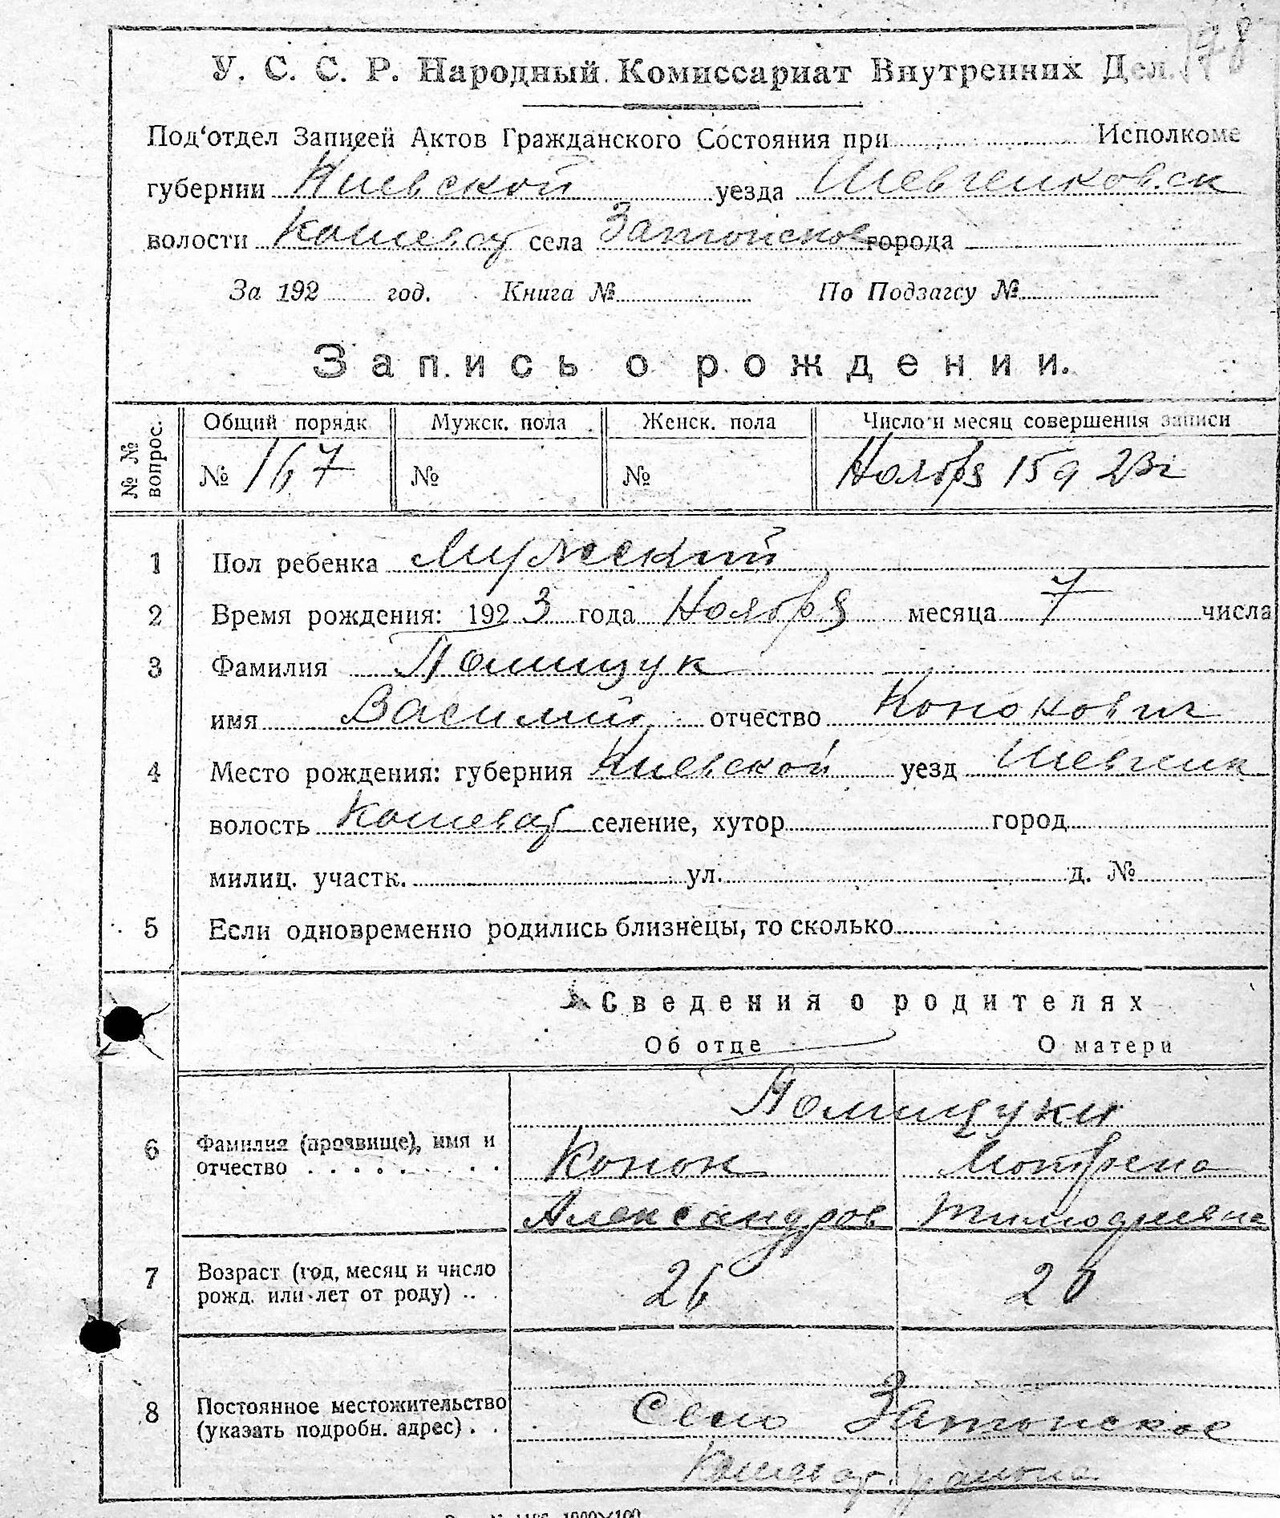 178
У. С. С. Р. Народный Комиссариат Внутренних Дел.
Под‘отдел Записей Актов Гражданского Состояния при Исполкоме
губернии Киевской уезда Шевченковск
волости Кошеват села Затонское города
За 192 год. Книга № По Подзагсу №
Запись о рождении.
№ № вопрос. Общий порядк Мужск. пола Женск. пола Число и месяц совершения записи
№ 167 № № Ноября 15 д 23 г
1 Пол ребенка Мужеский
2 Время рождения: 1923 года Ноября месяца 7 числа
3 Фамилия Полищук
имя Василий отчество Конокович
4 Место рождения: губерния Киевской уезд Шевченк
волость Кошеват селение, хутор город
милиц. участк. ул. д. №
5 Если одновременно родились близнецы, то сколько
Сведения о родителях
Об отце О матери
Полищуки
6 Фамилия (прозвище), имя и Конон Мотрена
отчество . . . . . . . . Александров Тимофиевна
7 Возраст (год, месяц и число 26 20
рожд. или лет от роду) . .
8 Постоянное местожительство Село Затонское
(указать подробн. адрес) . . Кошеват. района